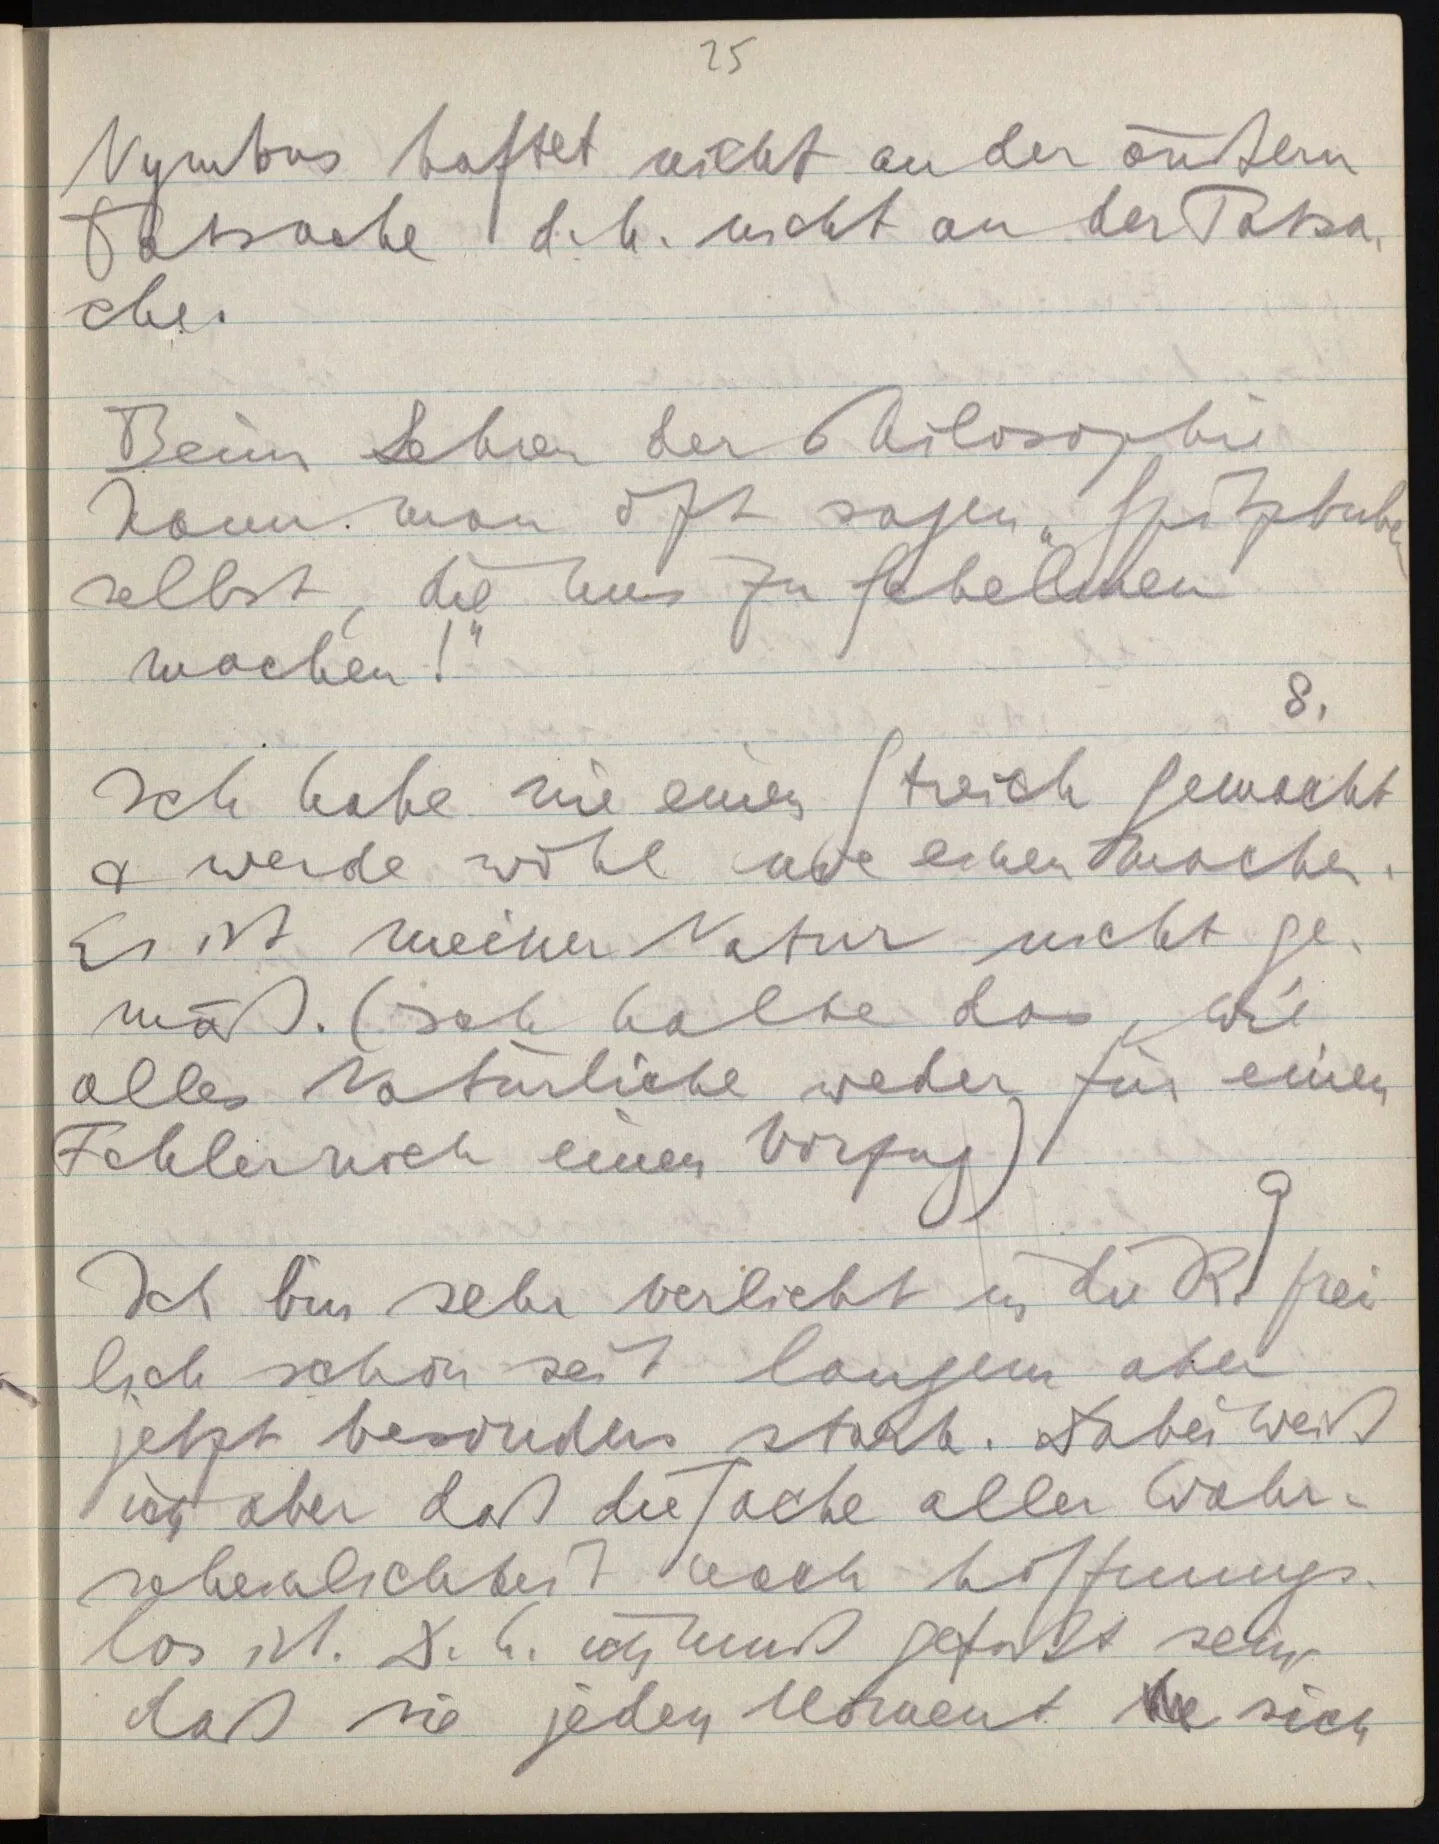 25
Nymbus haftet nicht an der äußern
Tatsache d. h. nicht an der Tatsa-
che.
Beim Lehren der Philosophie
kann man oft sagen „Spitzbuben
selbst, die uns zu Schelmen
machen!“
8.
Ich habe nie einen Streich gemacht
& werde wohl nie einen machen.
Es ist meiner Natur nicht ge-
mäß. (Ich halte das, wie
alles Natürliche weder für einen
Fehler noch einen Vorzug)
9
Ich bin sehr verliebt in die R. frei
lich schon seit langem aber
jetzt besonders stark. Dabei weiß
ich aber daß die Sache aller Wahr-
scheinlichkeit nach hoffnungs-
los ist. D. h. ich muß gefaßt sein
daß sie jeden Moment sich